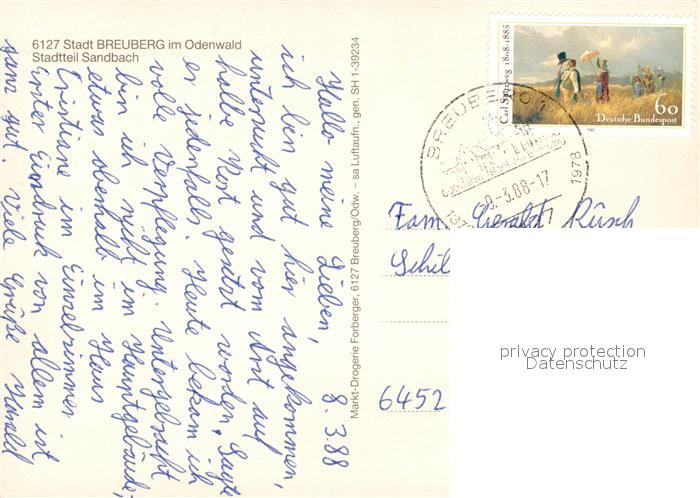 6127 Stadt BREUBERG im Odenwald
Stadtteil Sandbach
8.3.88
Hallo meine Lieben,
ich bin gut hier angekommen,
untersucht und vom Arzt auf
halbe Kost gesetzt worden. Sagte
er jedenfalls. Heute bekam ich
volle Verpflegung. Untergebracht
bin ich nicht im Hauptgebäude,
etwas oberhalb im Haus
Cristiane im Einzelzimmer
Erster Eindruck von allem ist
ganz gut. Viele Grüße Harald
Markt-Drogerie Forberger, 6127 Breuberg/Odw. – sa Luftaufn., gen. SH 1-39234
Carl Spitzweg 1808-1885
60
Deutsche Bundespost
BREUBERG 1
-8.-3.88-17
1978
Fam. Gerald Rüsch
Schil
6452
privacy protection
Datenschutz